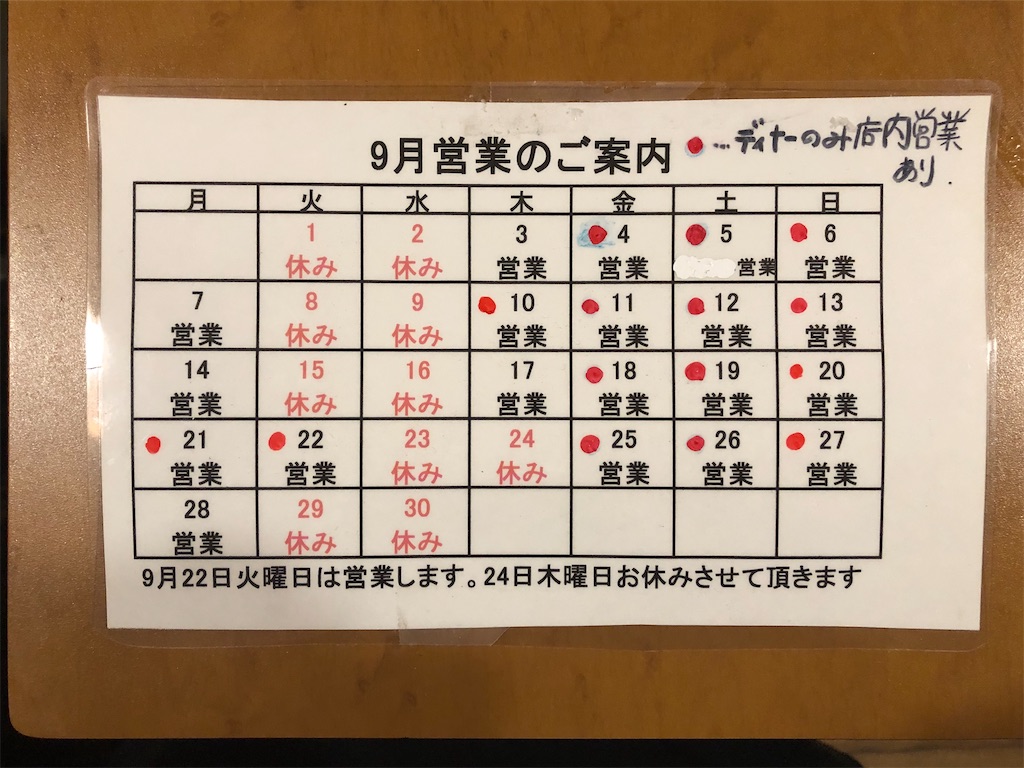 9月営業のご案内
●…ディナーのみ店内営業
あり.
月 火 水 木 金 土 日
1 2 3 4 5 6
休み 休み 営業 営業 営業 営業
7 8 9 10 11 12 13
営業 休み 休み 営業 営業 営業 営業
14 15 16 17 18 19 20
営業 休み 休み 営業 営業 営業 営業
21 22 23 24 25 26 27
営業 営業 休み 休み 営業 営業 営業
28 29 30
営業 休み 休み
9月22日火曜日は営業します。24日木曜日お休みさせて頂きます